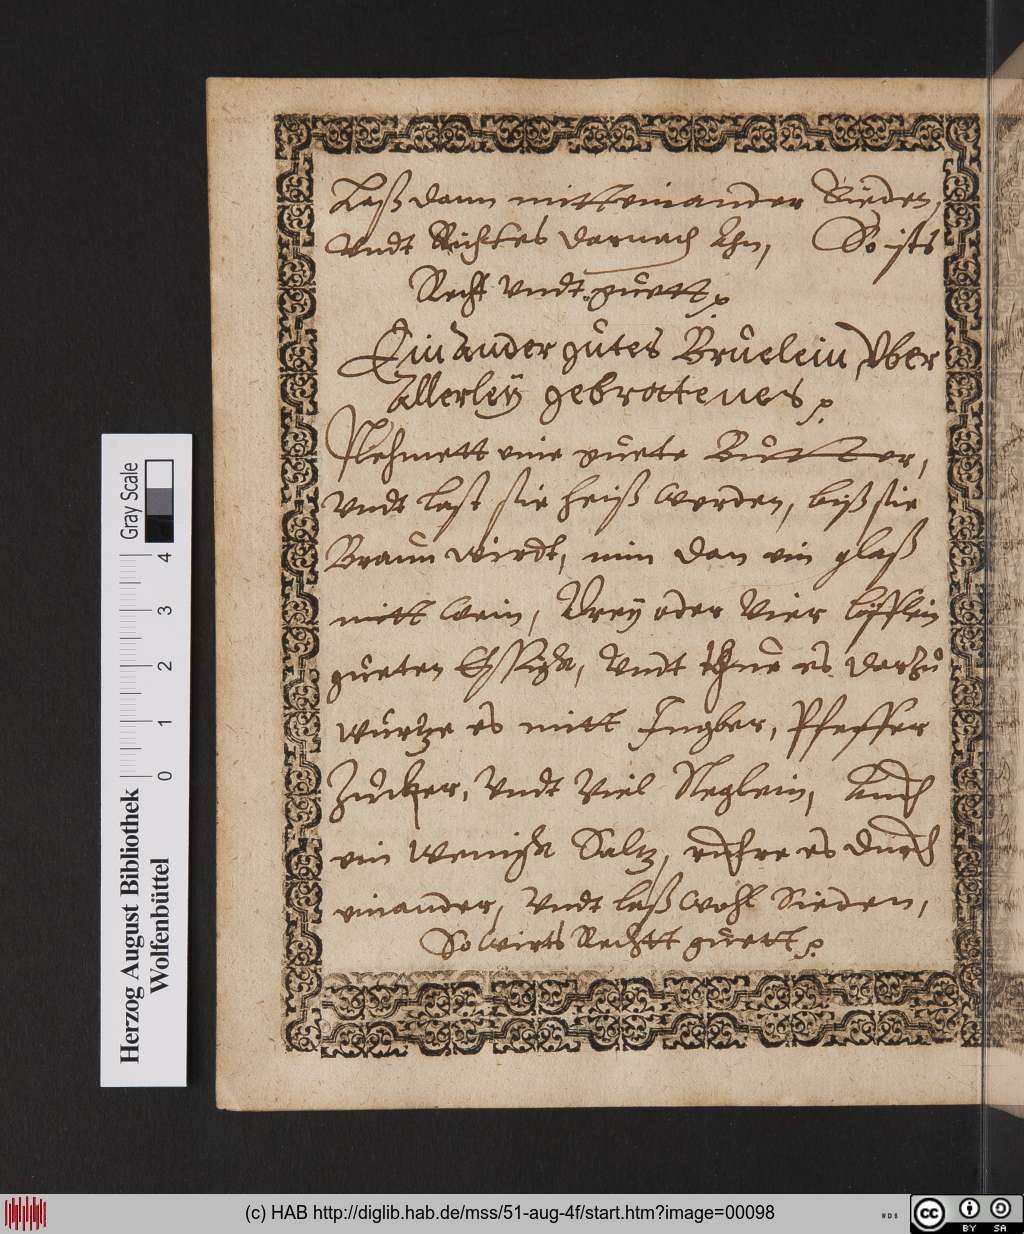 Laß dann mitteinander Sieden,
Vndt Richtes darnach Ahn, So ists
Recht Vndt guett.
Ein ander gutes Brüelein Vber
Allerleÿ gebrattenes.
Nehmett eine guete Butter,
Vndt last sie heiß werden, biß sie
Braun wirdt, nim dan ein glaß
mitt wein, Dreÿ oder Vier löfflein
gueten Essigh, Vndt thue es darzu
würtze es mitt Ingber, Pfeffer
Zucker, Vndt Viel Neglein, Auch
ein wenigh Saltz, rühre es durch
einander, Vndt laß wohl Sieden,
So wirts Rechtt guett.
Gray Scale
4
3
2
1
0
Herzog August Bibliothek
Wolfenbüttel
(c) HAB http://diglib.hab.de/mss/51-aug-4f/start.htm?image=00098
WDB
cc
BY SA